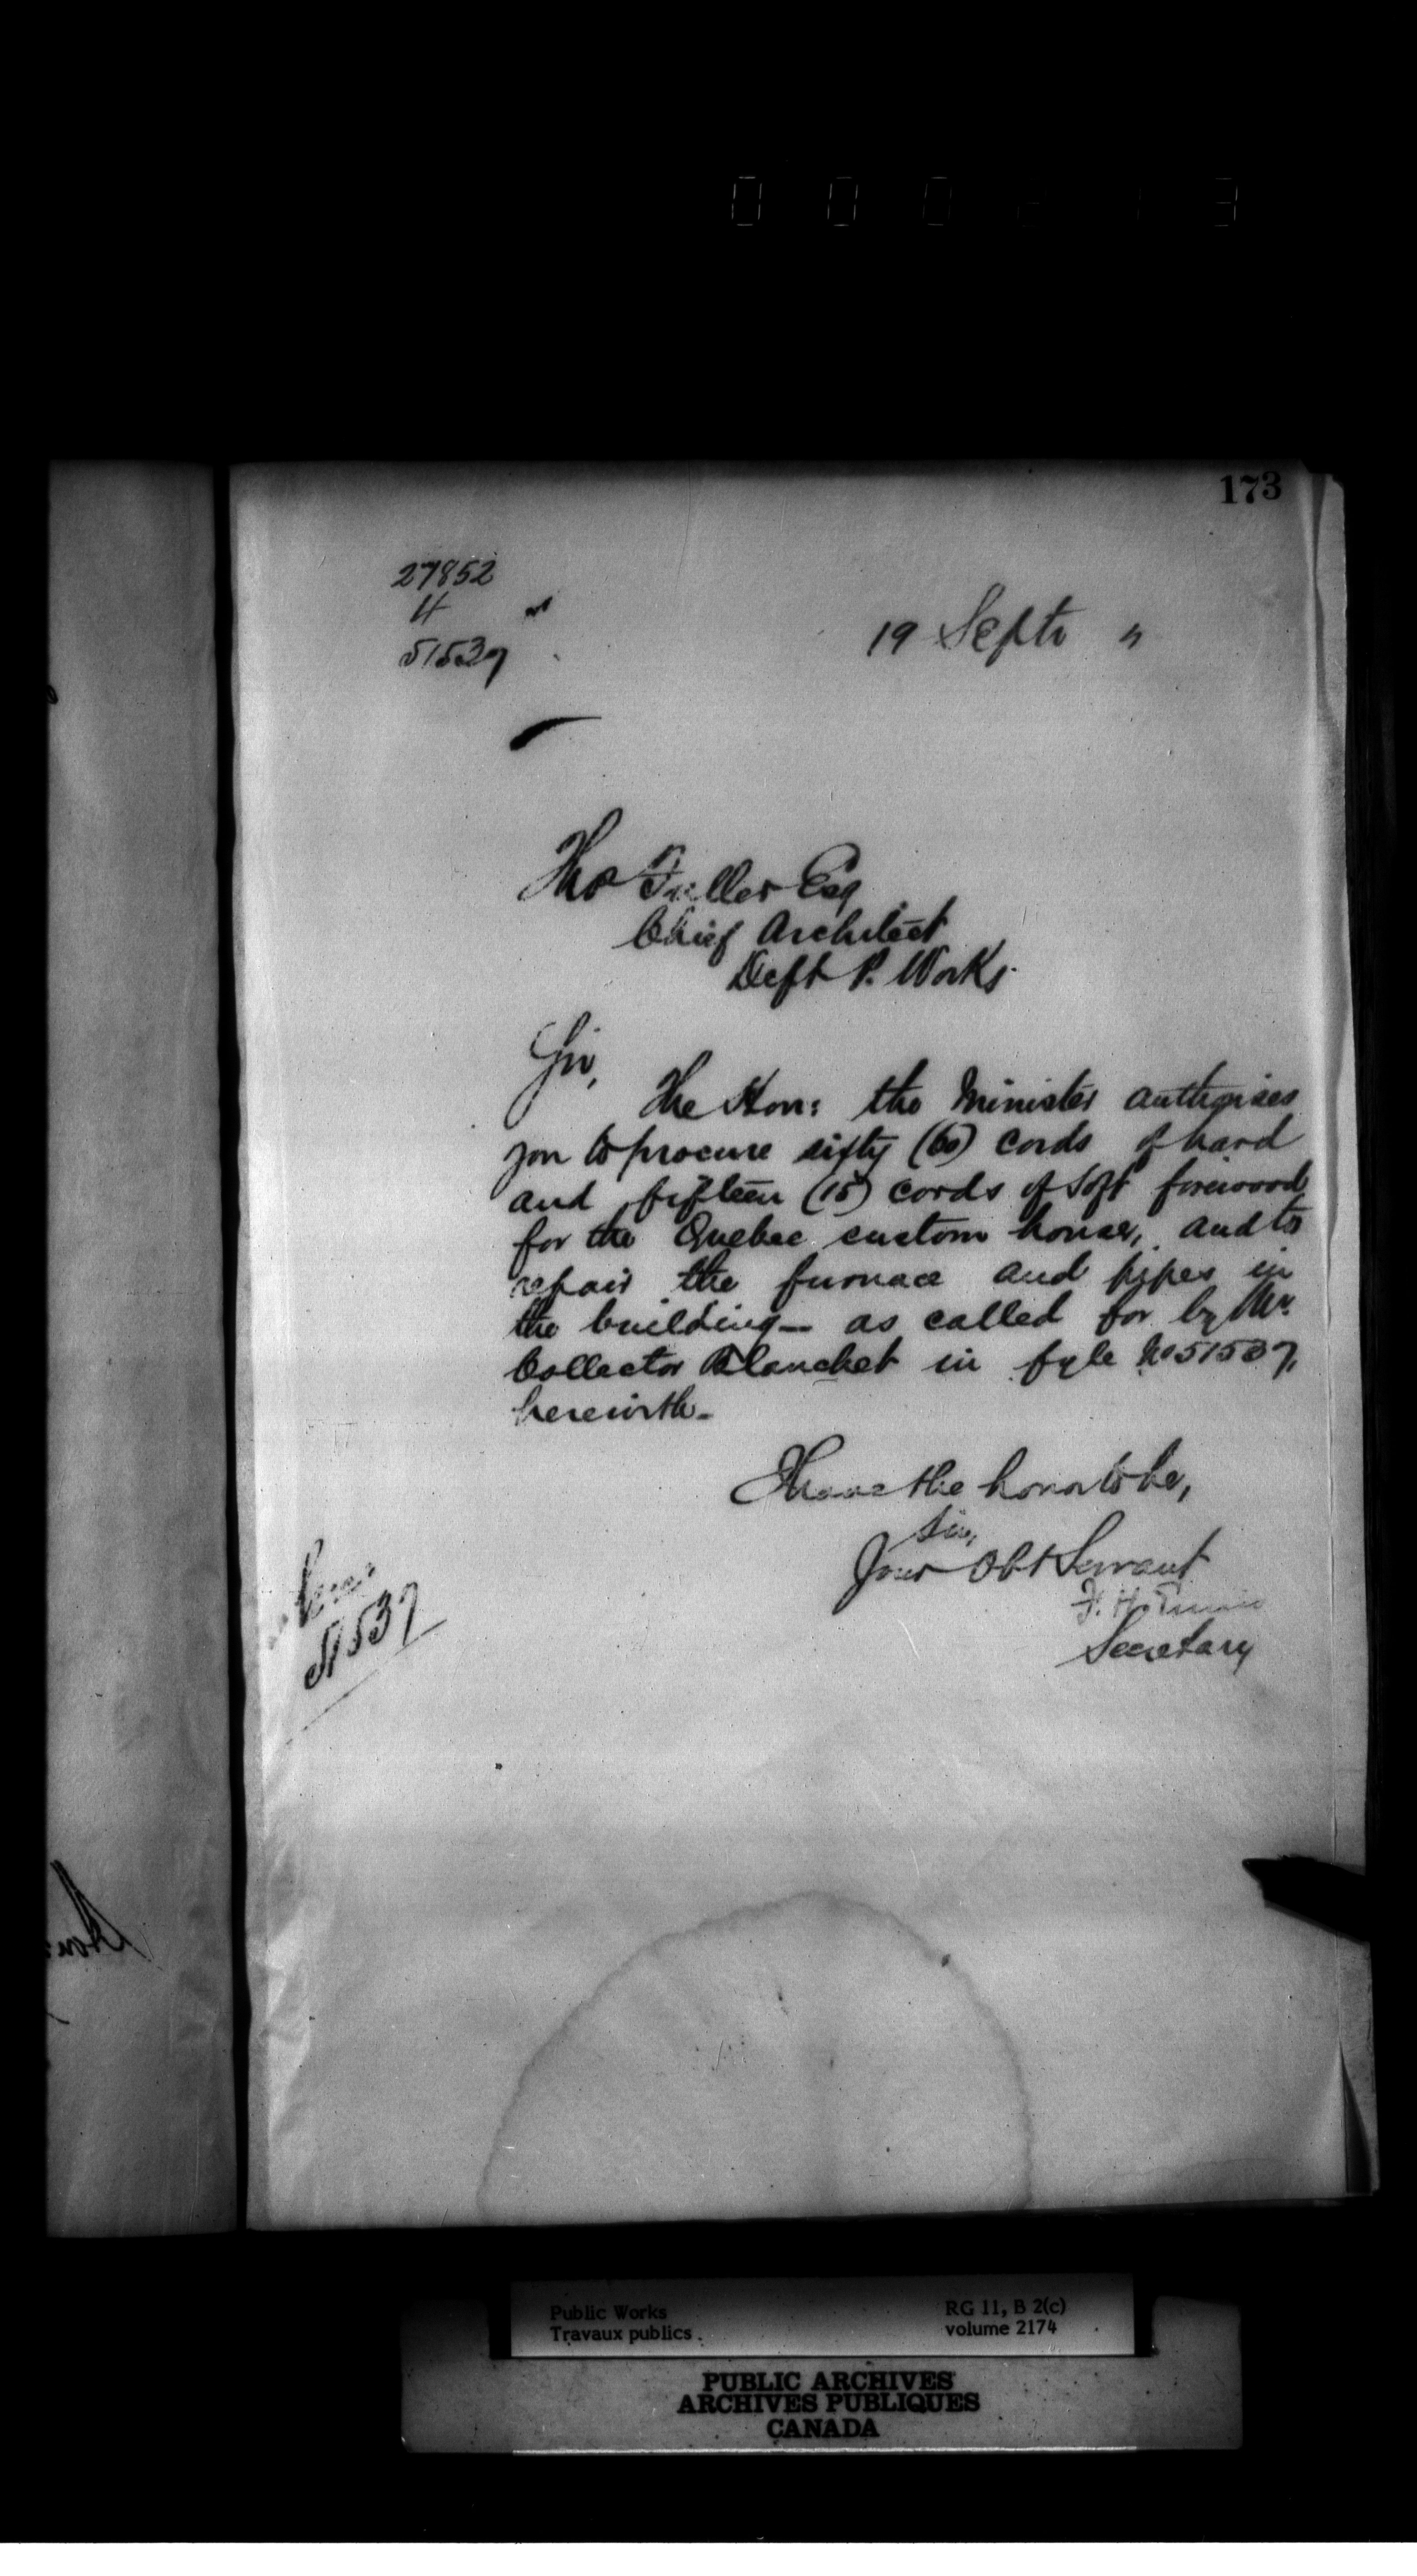 173
27852
H
51537
19 Septr "
Tho Fuller Esq
Chief Architect
Dept P. Works.
Sir,
The Hon: the Minister authorises
you to procure sixty (60) cords of hard
and fifteen (15) cords of soft firewood
for the Quebec custom house, and to
repair the furnace and pipes in
the building — as called for by Mr.
Collector Blanchet in fyle No 51537,
herewith —
I have the honor to be,
Sir,
Your Obt Servant
F. H. Ennis
Secretary
51537
Public Works
Travaux publics
RG 11, B 2(c)
volume 2174
PUBLIC ARCHIVES
ARCHIVES PUBLIQUES
CANADA